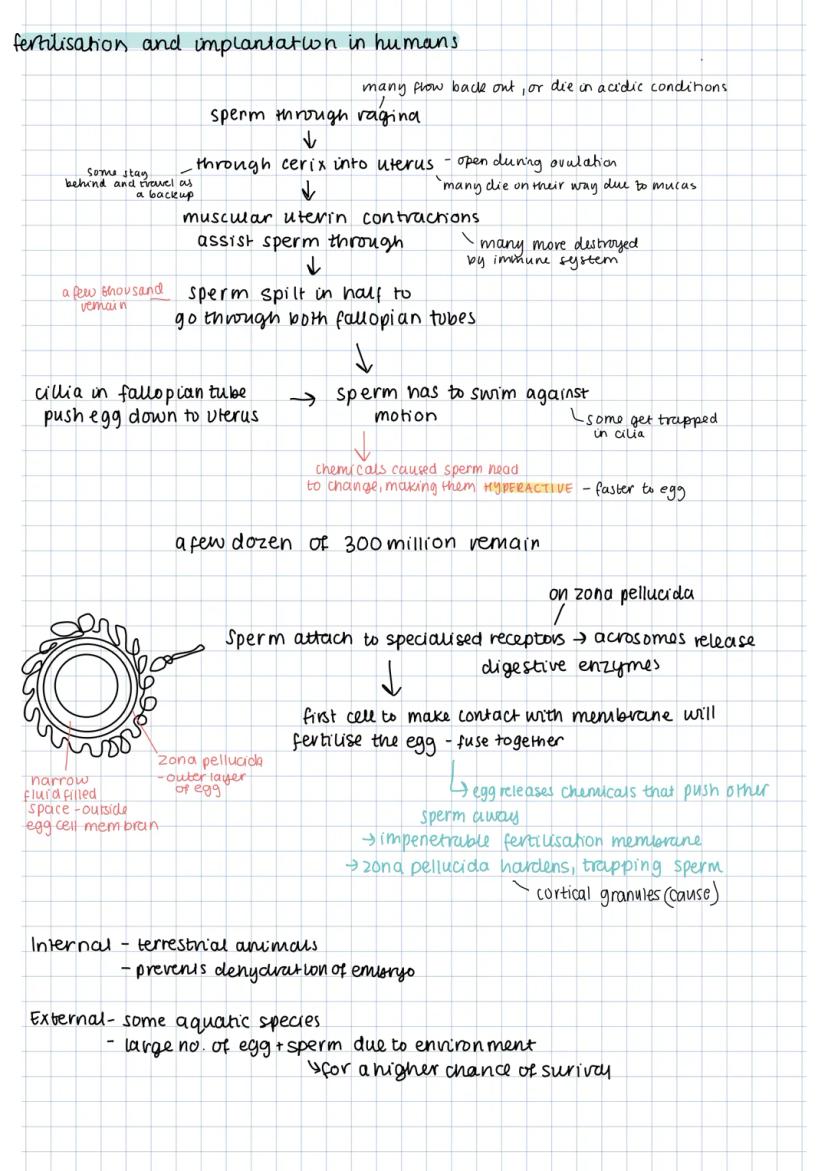 fertilisation and implantation in humans
many flow back out, or die in acidic conditions
sperm through vagina
through cerix into uterus - open during ovulation
some stay
behind and travel as
a backup
many die on their way due to mucas
muscular uterin contractions
assist sperm through
many more destroyed
by immune system
a few thousand
remain
sperm spilt in half to
go through both fallopian tubes
cillia in fallopian tube
push egg down to uterus
→ sperm has to swim against
motion
some get trapped
in cilia
chemicals caused sperm head
to change, making them HYPERACTIVE - faster to egg
a few dozen of 300 million remain
on zona pellucida
sperm attach to specialised receptors → acrosomes release
digestive enzymes
first cell to make contact with membrane will
fertilise the egg - fuse together
zona pellucida
- outer layer
of egg
narrow
fluid filled
space - outside
egg cell membran
↳ egg releases chemicals that push other
sperm away
→ impenetrable fertilisation membrane
→ zona pellucida hardens, trapping sperm
cortical granules (cause)
Internal - terrestrial animals
- prevents dehydration of embryo
External - some aquatic species
- large no. of egg + sperm due to environment
↳ for a higher chance of surival